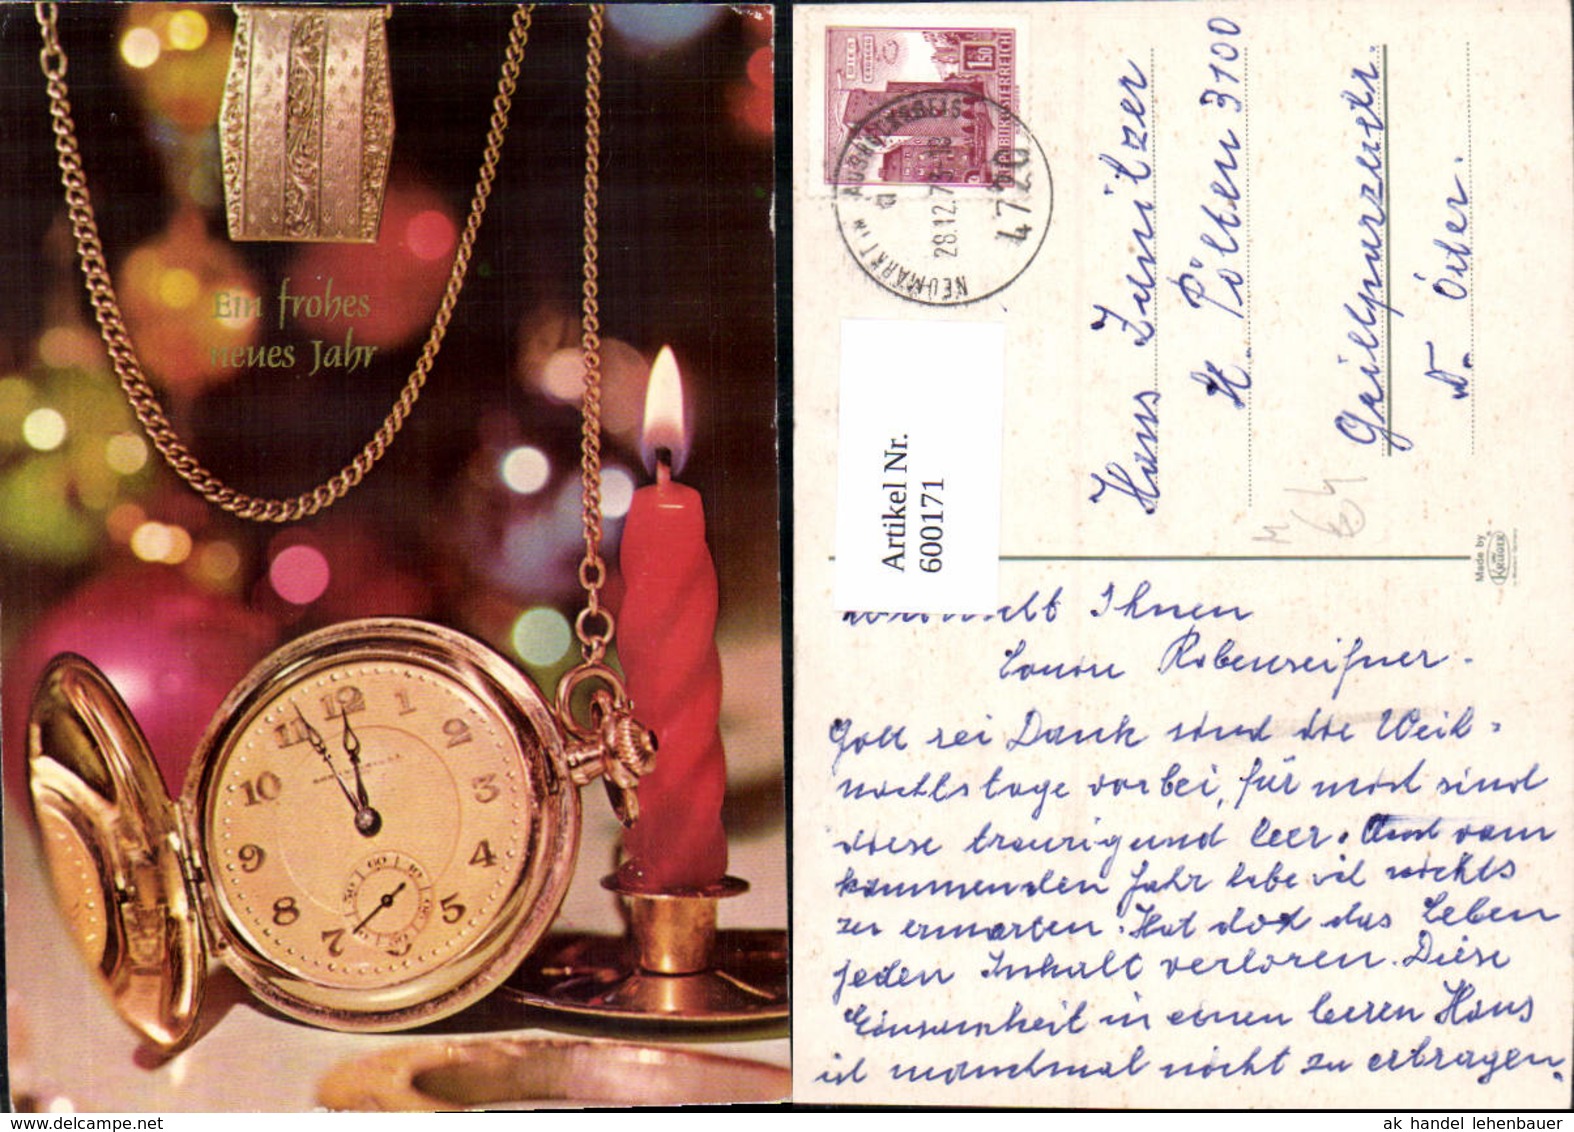 Ein frohes
neues Jahr
12
1
2
3
4
5
7
8
9
10
11
60
1.50
ÖSTERREICH
NEUMARKT IM
28.12.73
4720
Artikel Nr.
600171
Hans
St. Pölten 3100
N. Öster.
Made by
KRÜGER
Ihnen
Gott sei Dank sind die Weih-
nachtstage vorbei, für mich sind
diese traurig und leer. Und vom
kommenden Jahr habe ich nichts
zu erwarten. Hat doch das Leben
jeden Inhalt verloren. Diese
Einsamkeit in einen leeren Haus
ist manchmal nicht zu ertragen.
ak handel lehenbauer